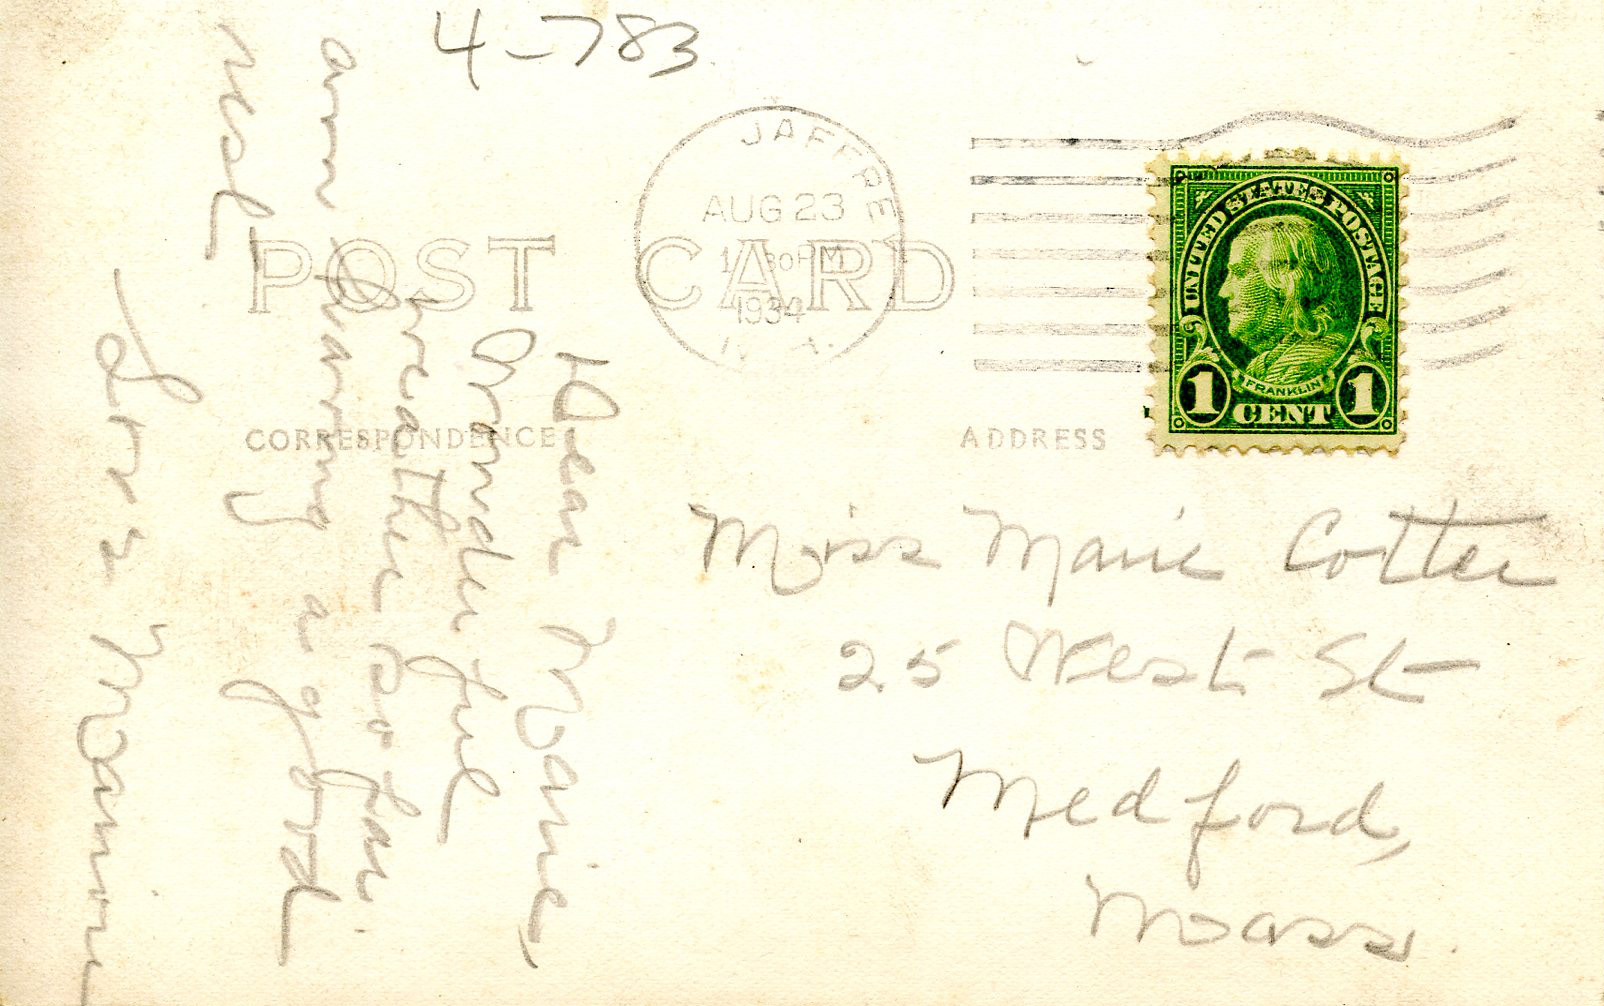 4-783
JAFFRE
AUG 23
30 PM
1934
N. H.
UNITED STATES POSTAGE
FRANKLIN
1 CENT 1
POST CARD
CORRESPONDENCE
ADDRESS
Dear Marie,
Wonderful
weather so far.
am having a good
rest.
Love Mamie
Miss Marie Cotter
25 West St
Medford,
Mass.